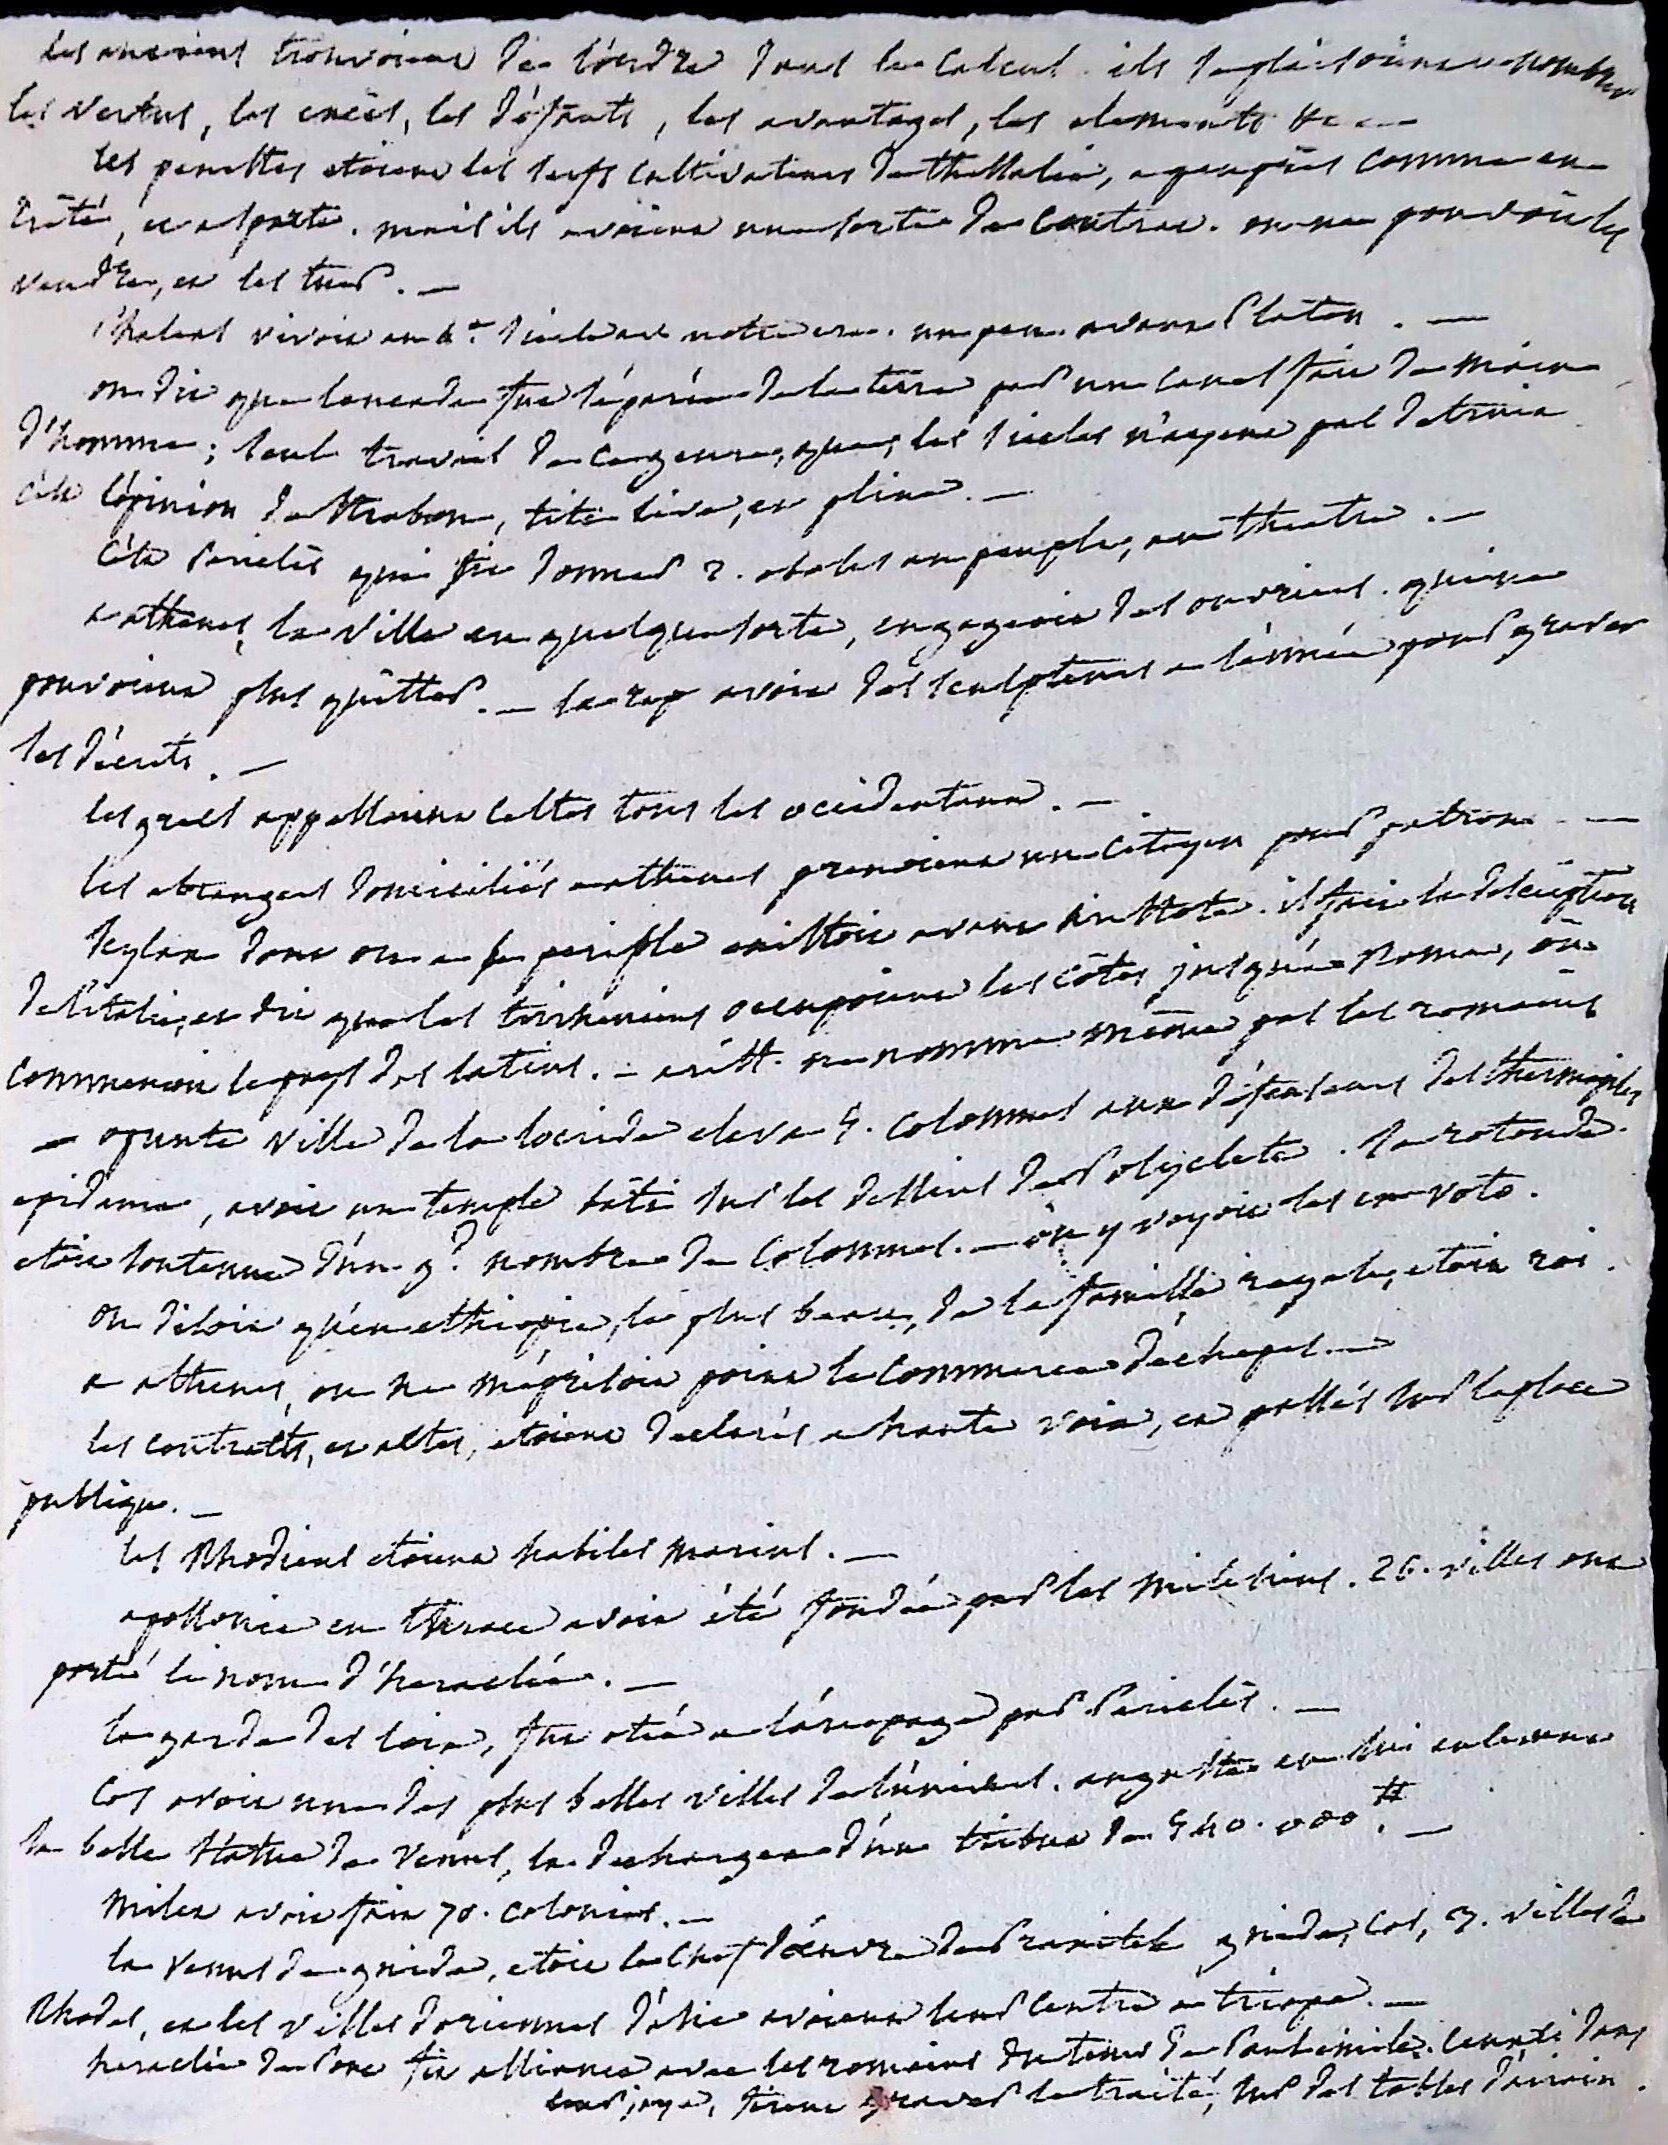 les anciens trouvoient de l'ordre dans le calcul. ils se plaisoient a nombrer
les vertus, les excès, les défauts, les avantages, les elements &c —
les penestes etoient les serfs cultivateurs de thessalie, a peu près comme en
crète, et a sparte. mais ils avoient une sorte de contrat. on ne pouvoit les
vendre, et les tuer. —
Phaleas vivoit au 4.e siecle av. notre ere. un peu avant Platon. —
on dit que leucade fut séparée de la terre par un canal fait de main
d'homme; seul travail de ce genre, que les siecles n'ayent pas detruit
c'est l'opinion de Strabon, tite live, et pline. —
c'est Periclès qui fit donner 2. oboles au peuple, au theatre. —
a athenes, la ville en quelque sorte, engageoit des ouvriers. qui ne
pouvoient plus quitter. — la rep avoit des sculpteurs a l'année pour graver
les décrets. —
les grecs appelloient celtes tous les occidentaux. —
les etrangers domiciliés a athènes prenoient un citoyen pour patron. —
Scylax dont on a le periple existoit avant Aristote. il fait la description
de l'italie, et dit que les tirrheniens occupoient les côtes jusqu'à Rome, où
commençoit le pays des latins. — arist. ne nomme même pas les romains
— opunte ville de la locride eleva 5. colonnes aux défenseurs des thermopyles
epidaure, avoit un temple bâti sur les dessins de Polyclete. sa rotonde.
etoit soutenue d'un gd nombre de colonnes. — on y voyoit les ex voto.
on disoit qu'en ethiopie, le plus beau, de la famille royale, etoit roi.
a athenes, on ne méprisoit point le commerce d'échapes. —
les contracts, et actes, etoient declarés a haute voix, et passés sur la place
publique. —
les Rhodiens etoient habiles marins. —
apollonie en thrace avoit été fondée par les milesiens. 26. villes ont
porté le nom d'heraclée. —
la garde des loix, fut otée a l'aréopage par Periclès. —
Cos avoit une des plus belles villes de l'univers. auguste en lui enlevant
la belle statue de Venus, la dechargea d'un tribut de 540.000.# —
milet avoit fait 70. colonies. —
la Venus de gnide, etoit le chef d'œuvre de Praxitele gnide, Cos, 3. villes de
Rhodes, et les villes doriennes d'asie avoient leur centre a triope. —
heraclée de Pont fit alliance avec les romains du tems de Paul emile. ceux ci dans
leur joye, firent graver le traité, sur des tables d'airain.